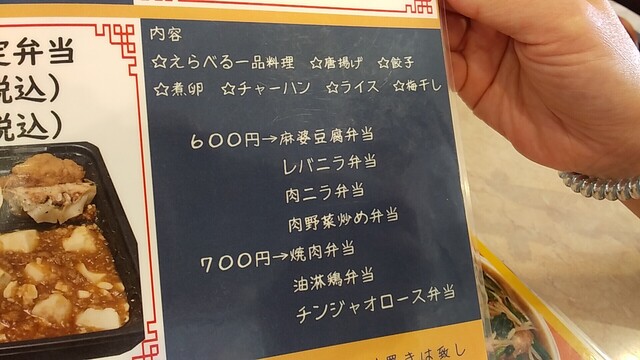 定弁当
税込)
税込)
内容
☆えらべる一品料理 ☆唐揚げ ☆餃子
☆煮卵 ☆チャーハン ☆ライス ☆梅干し
600円→麻婆豆腐弁当
レバニラ弁当
肉ニラ弁当
肉野菜炒め弁当
700円→焼肉弁当
油淋鶏弁当
チンジャオロース弁当
は致し